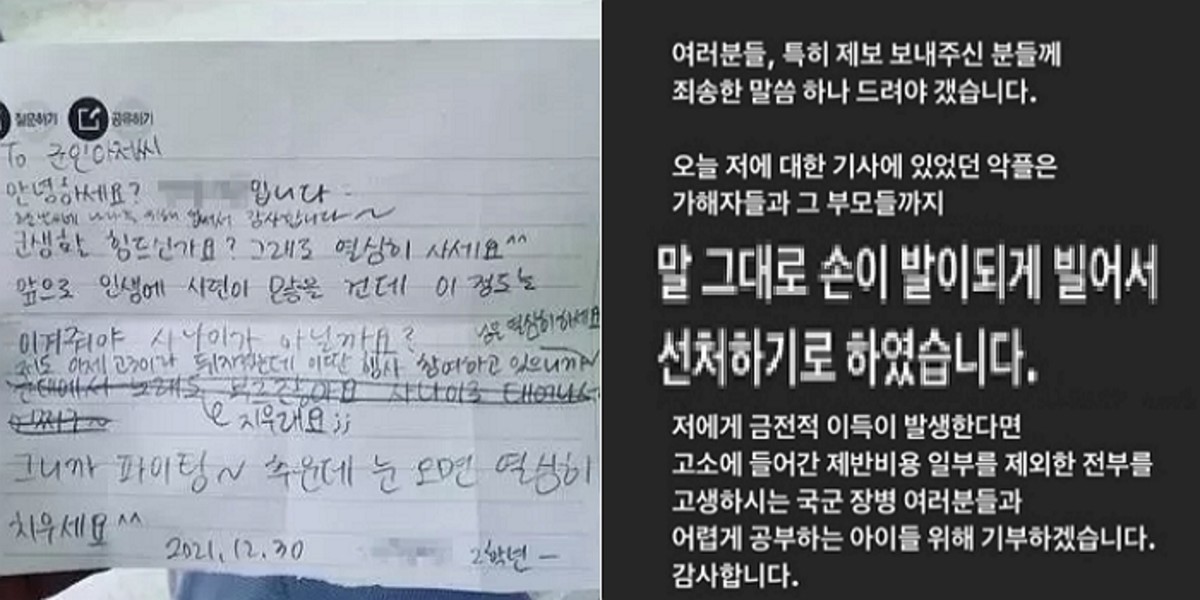 질문하기 공유하기
To 군인아저씨
안녕하세요? 입니다
감사합니다~
군생활 힘드신가요? 그래도 열심히 사세요^^
앞으로 인생에 시련이 많을 건데 이 정도는
이겨줘야 사나이가 아닐까요?
저도 이제 고3이라 뒤지겠는데 이딴 행사 참여하고 있으니까~
군대에서 노래도 부르잖아요 사나이로 태어나서
어쩌구~
지우래요;;
그니까 파이팅~ 추운데 눈 오면 열심히
치우세요^^
2021.12.30 2학년 -
여러분들, 특히 제보 보내주신 분들께
죄송한 말씀 하나 드려야 갰습니다.
오늘 저에 대한 기사에 있었던 악플은
가해자들과 그 부모들까지
말 그대로 손이 발이되게 빌어서
선처하기로 하였습니다.
저에게 금전적 이득이 발생한다면
고소에 들어간 제반비용 일부를 제외한 전부를
고생하시는 국군 장병 여러분들과
어렵게 공부하는 아이들 위해 기부하겠습니다.
감사합니다.